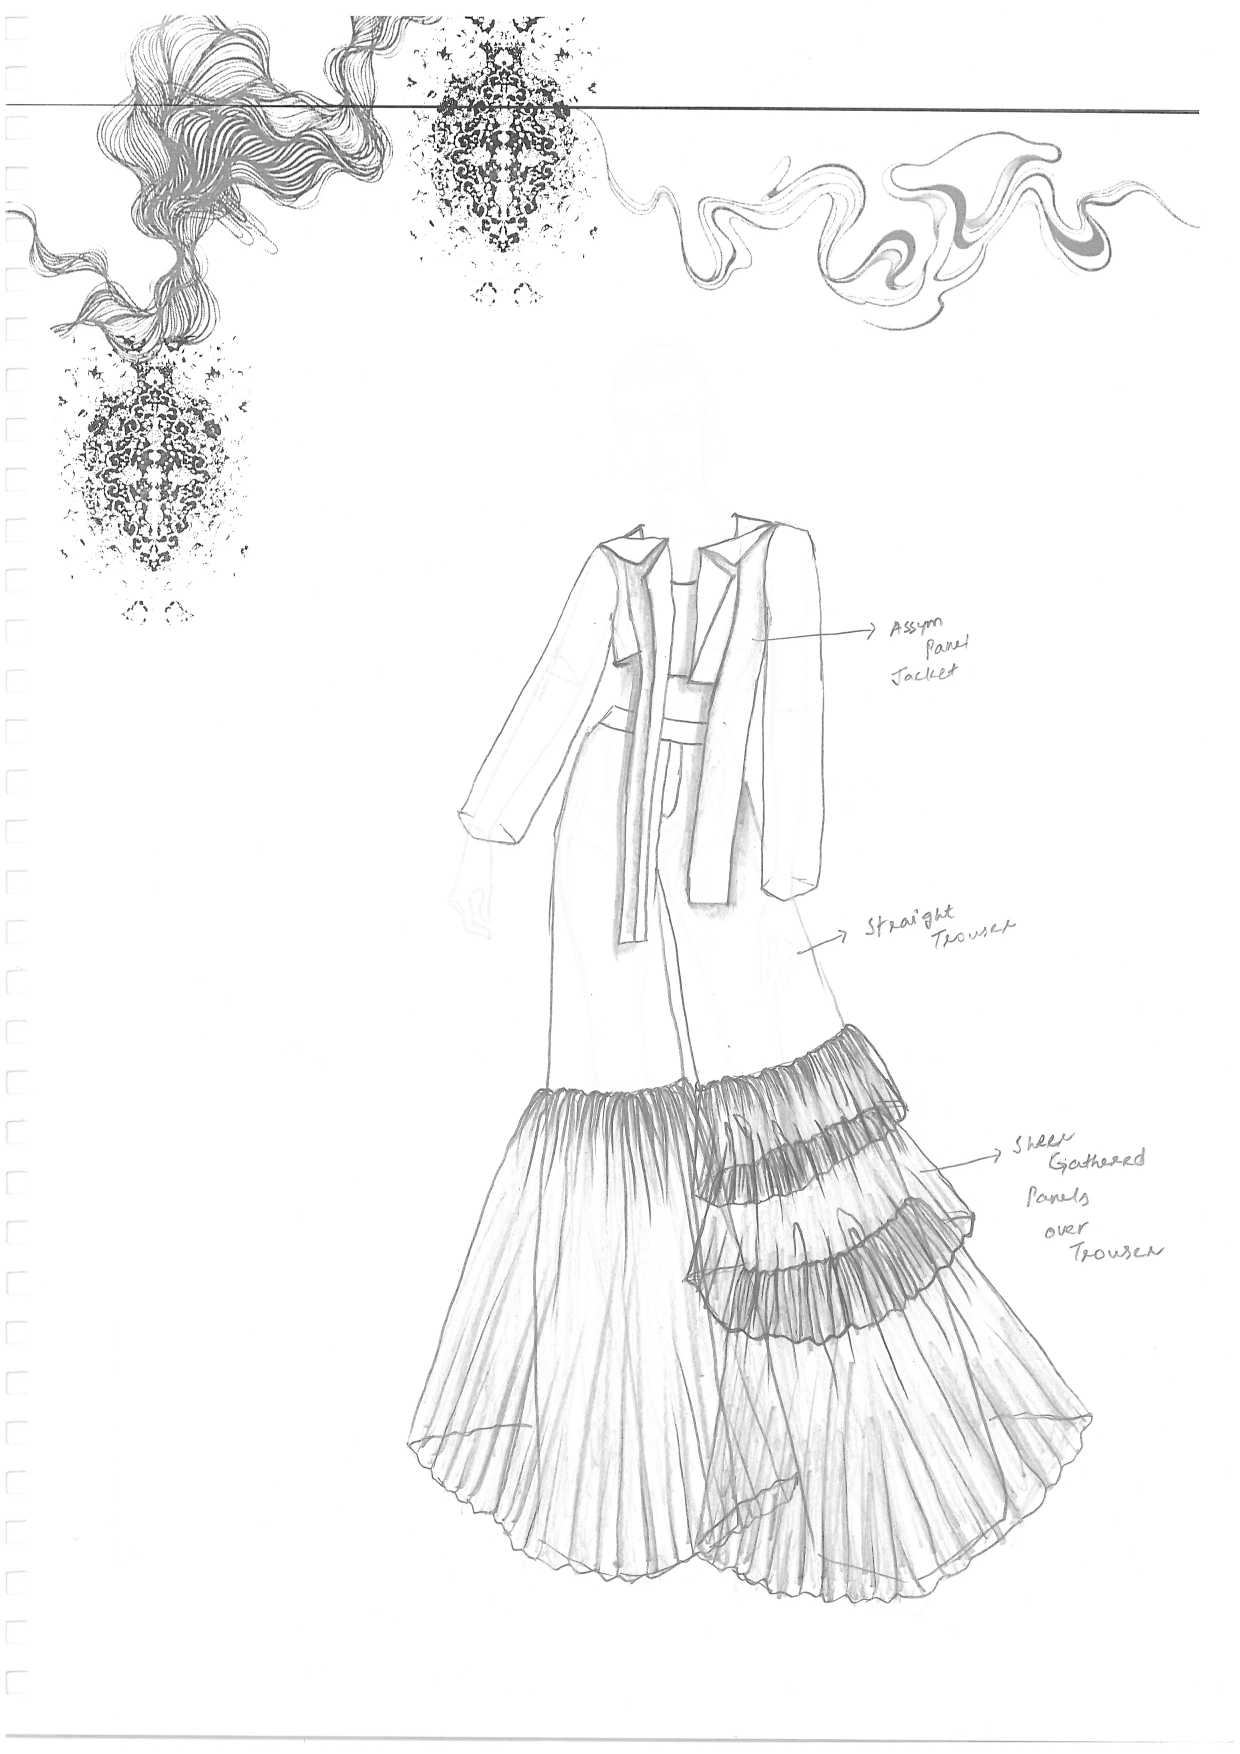 Assym
Panel
Jacket
Straight
Trouser
Sheer
Gathered
Panels
over
Trouser